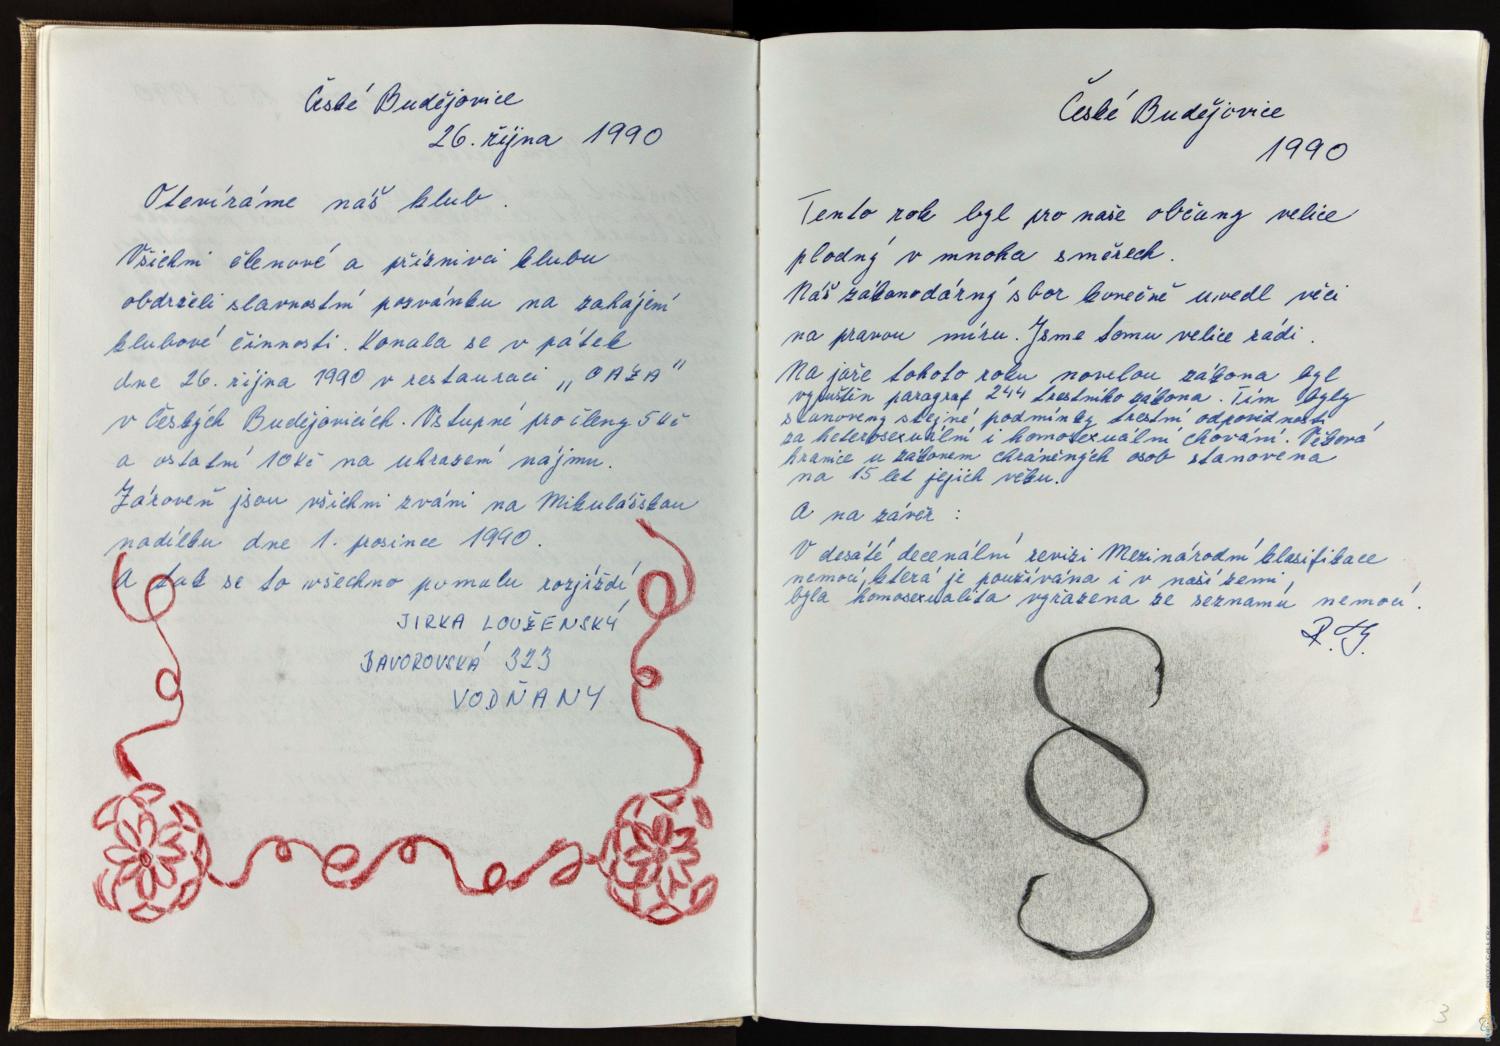 České Budějovice
26. října 1990
Otevíráme náš klub.
Všichni členové a příznivci klubu
obdrželi slavnostní pozvánku na zahájení
klubové činnosti. Konala se v pátek
dne 26. října 1990 v restauraci „OAZA"
v Českých Budějovicích. Vstupné pro členy 5 Kč
a ostatní 10 Kč na uhrazení nájmu.
Zároveň jsou všichni zváni na Mikulášskou
nadílku dne 1. prosince 1990.
A tak se to všechno pomalu rozjíždí
JIRKA LOUŽENSKÝ
BAVOROVSKÁ 323
VODŇANY
České Budějovice
1990
Tento rok byl pro naše občany velice
plodný v mnoha směrech.
Náš zákonodárný sbor konečně uvedl věci
na pravou míru. Jsme tomu velice rádi.
Na jaře tohoto roku novelou zákona byl
vypuštěn paragraf 244 trestního zákona. Tím byly
stanoveny stejné podmínky trestní odpovědnosti
za heterosexuální i homosexuální chování. Věková
hranice u zákonem chráněných osob stanovena
na 15 let jejich věku.
A na závěr:
V desáté decenální revizi Mezinárodní klasifikace
nemocí, která je používána i v naší zemi,
byla homosexualita vyřazena ze seznamu nemocí.
§
3